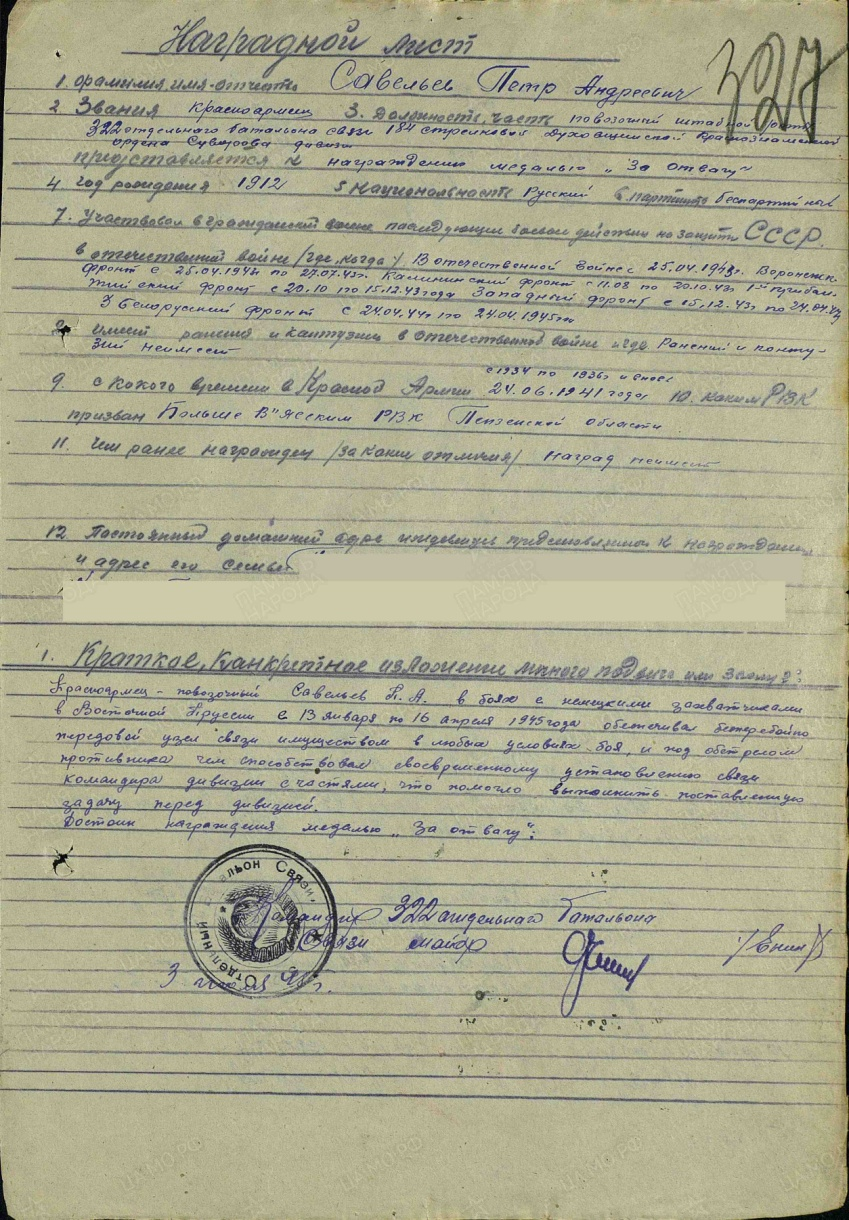 327
Наградной лист
1. Фамилия, имя-отчество Савельев Петр Андреевич
2. Звания Красноармеец 3. Должность, часть повозочный штабной роты
322 отдельного батальона связи 184 стрелковой Духовщинской Краснознаменной
ордена Суворова дивизи
представляется к награждению медалью „За отвагу“
4. Год рождения 1912 5. Национальность Русский 6. Партийность беспартийный
7. Участвовал в гражданской войне последующим боевом действии на защите СССР.
в отечественной войне /где, когда/ В отечественной войне с 25.04.1943г. Воронежск.
фронт с 25.04.1943г по 27.07.43г. Калининский фронт с 11.08 по 20.10.43г 1ый прибал
тийский фронт с 20.10 по 15.12.43года Западный фронт с 15.12.43г по 24.04.44г
3 Белорусский фронт с 24.04.44г по 24.04.1945г
8. имеет ранения и кантузии в отечественной войне и где Ранений и конту-
зий неимеет
с 1934 по 1936г и снова
9. с какого времени в Красной Армии 24.06.1941 года 10. каким РВК
призван Больше В"ясским РВК Пензенской области
11. Чем ранее награжден /за какие отличия/ Наград неимеет
12 Постоянный домашний адрес представляемого к награждению
и адрес его семьи
1. Краткое, канкретное изложение личного подвига или заслуг:
Красноармеец - повозочный Савельев П.А. в боях с немецкими захватчиками
в Восточной Пруссии с 13 января по 16 апреля 1945 года обеспечивал бесперебойно
передовой узел связи имуществом в любых условиях боя, и под обстрелом
противника чем способствовал своевременному установлению связи
командира дивизии с частями, что помогло выполнить поставленную
задачу перед дивизией.
Достоин награждения медалью „За отвагу“.
Отдельный батальон Связи
Командир 322 отдельного батальона
Связи майор /Енин/
3 45г.